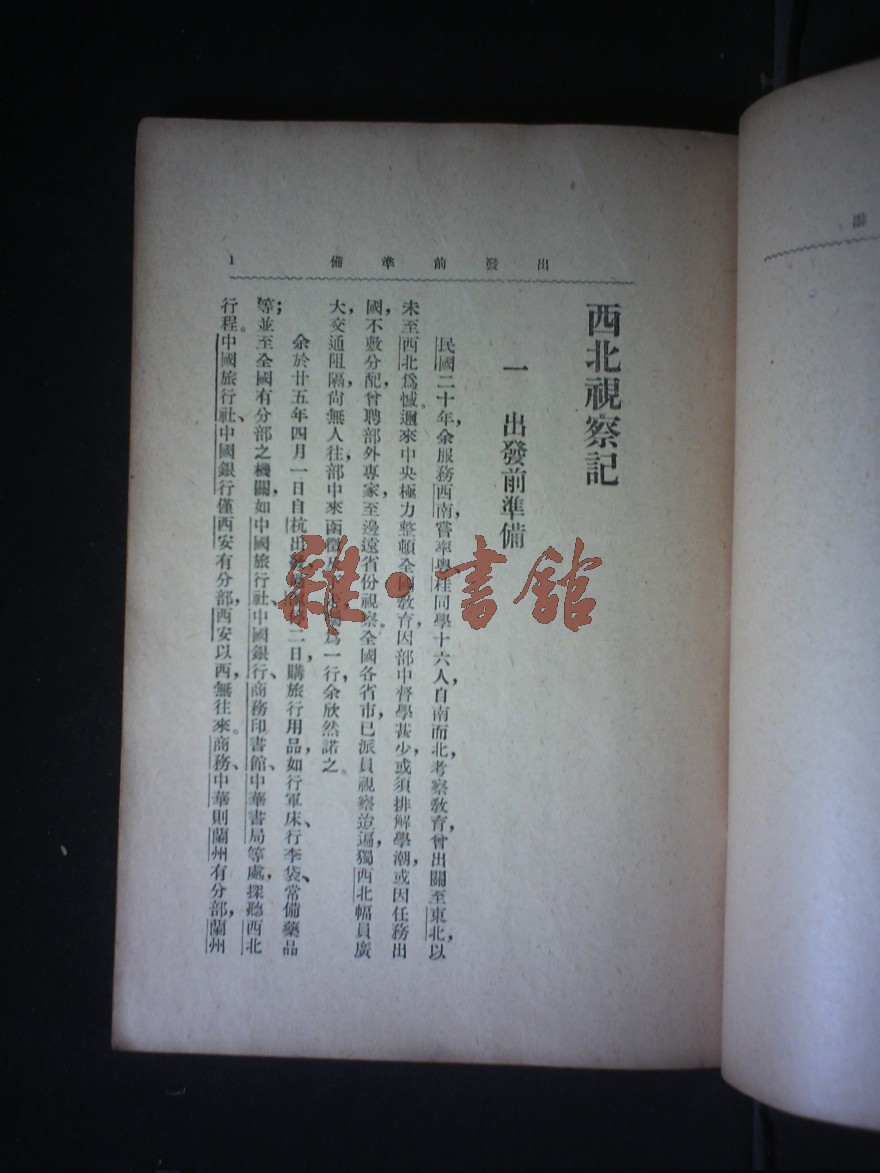 出發前準備 1
西北視察記
一 出發前準備
民國二十年，余服務西南，嘗率粵桂同學十六人，自南而北，考察教育，曾出關至東北，以
未至西北爲憾。邇來中央極力整頓全國教育，因部中督學甚少，或須排解學潮，或因任務出
國，不敷分配，曾聘部外專家至邊遠省份視察。全國各省市，已派員視察迨遍，獨西北幅員廣
大，交通阻隔，尚無人往，部中來函徵爲一行，余欣然諾之。
余於廿五年四月一日自杭出二日，購旅行用品，如行軍床、行李袋、常備藥品
等；並至全國有分部之機關，如中國旅行社、中國銀行、商務印書館、中華書局等處，探聽西北
行程。中國旅行社、中國銀行僅西安有分部，西安以西，無往來。商務、中華則蘭州有分部，蘭州
雜·書館